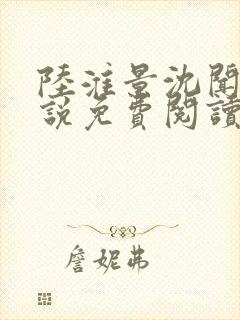 陸淮景沈聞
說免費閱讀
詹妮弗